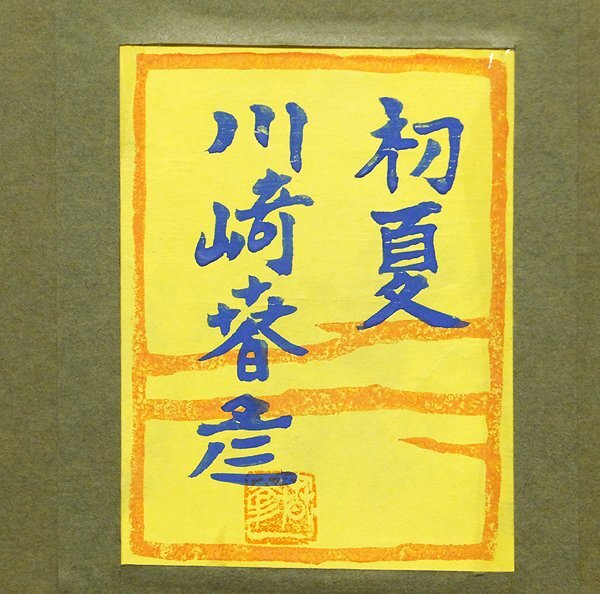 初夏
川﨑春彦